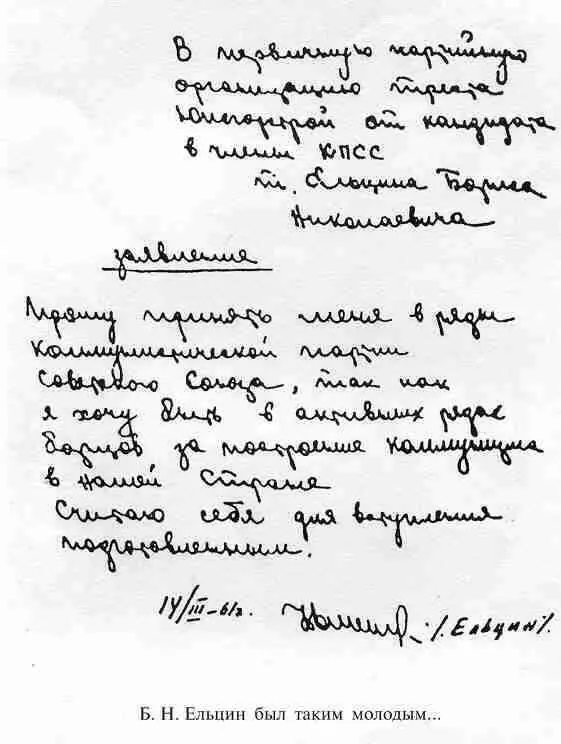 В первичную партийную
организацию треста
Южгорстрой от кандидата
в члены КПСС
т. Ельцина Бориса
Николаевича
заявление
Прошу принять меня в ряды
Коммунистической партии
Советского Союза, так как
я хочу быть в активных рядах
борцов за построение коммунизма
в нашей стране
Считаю себя для вступления
подготовленным.
14/III-61г.
/. Ельцин/.
Б. Н. Ельцин был таким молодым...